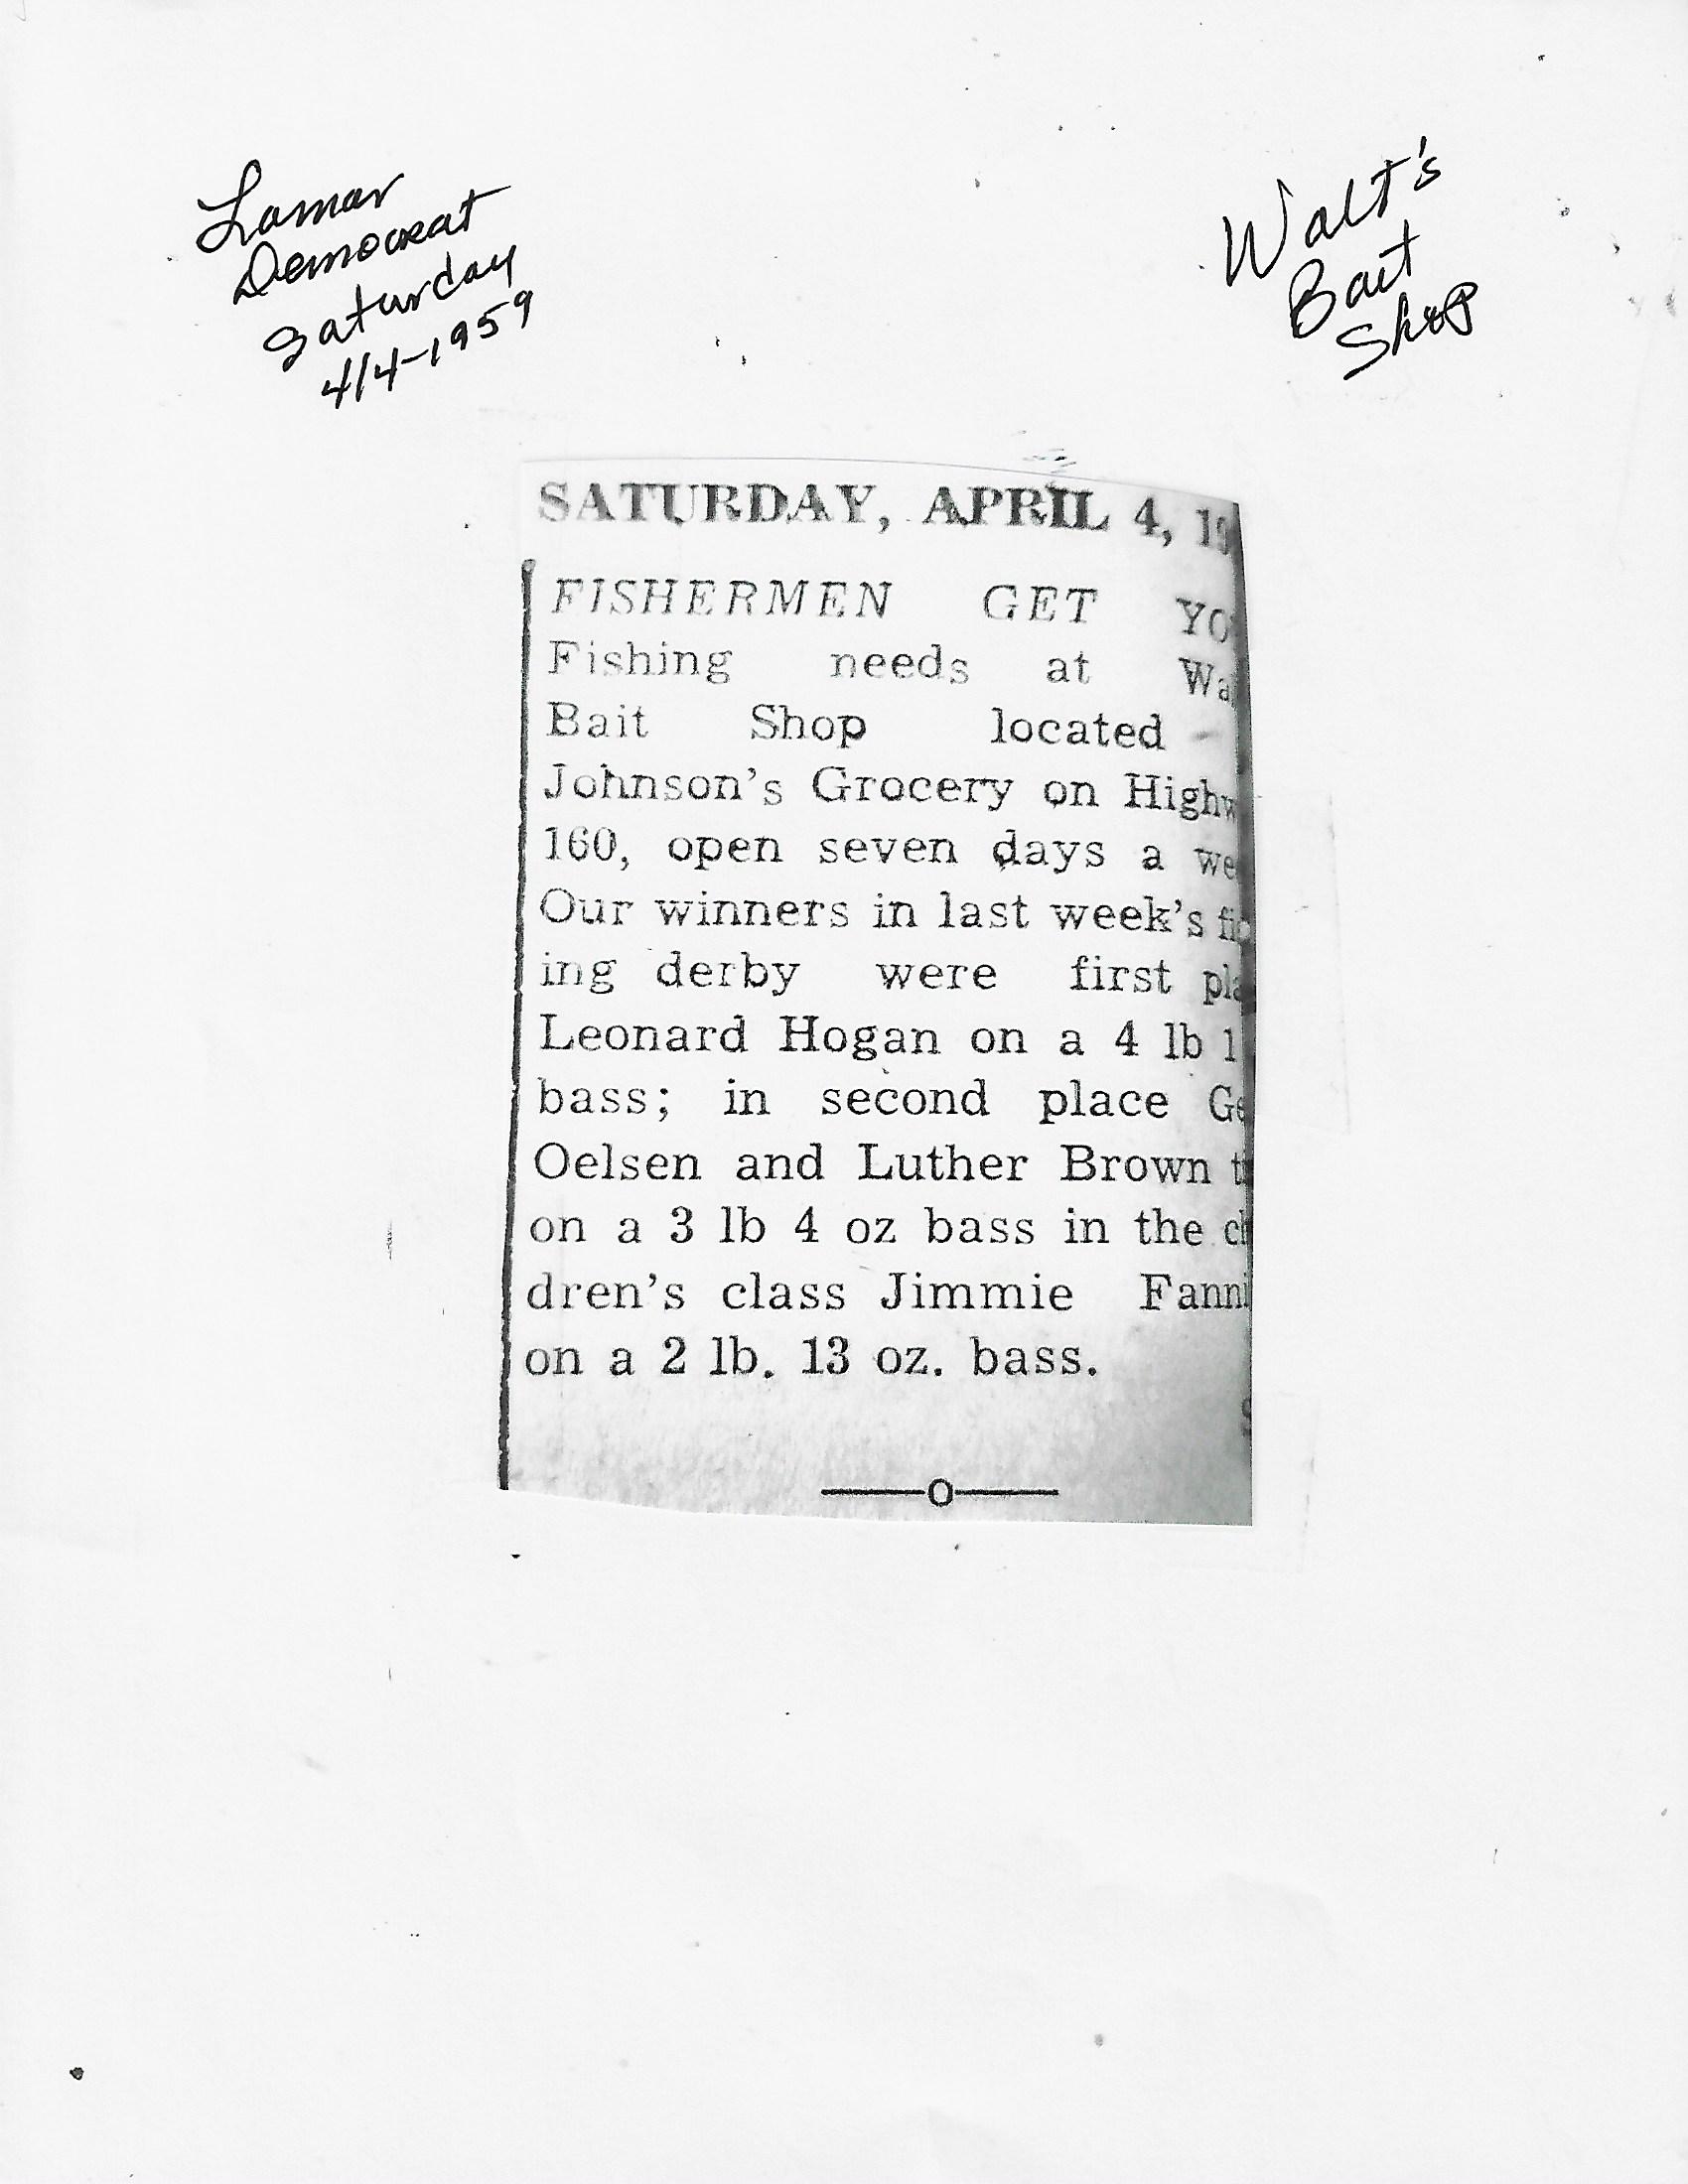 Lamar
Democrat
Saturday
4/4-1959
Walt's
Bait
Shop
SATURDAY, APRIL 4, 19
FISHERMEN GET YO
Fishing needs at Wa
Bait Shop located
Johnson's Grocery on Highw
160, open seven days a we
Our winners in last week's
ing derby were first pla
Leonard Hogan on a 4 lb 1
bass; in second place Ge
Oelsen and Luther Brown
on a 3 lb 4 oz bass in the ch
dren's class Jimmie Fanni
on a 2 lb. 13 oz. bass.